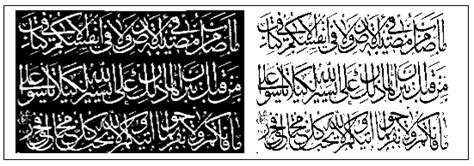 ما أصاب من مصيبة في الأرض ولا في أنفسكم إلا في كتاب
من قبل أن نبرأها إن ذلك على الله يسير لكيلا تأسوا على
ما فاتكم ولا تفرحوا بما آتاكم والله لا يحب كل مختال فخور
ما أصاب من مصيبة في الأرض ولا في أنفسكم إلا في كتاب
من قبل أن نبرأها إن ذلك على الله يسير لكيلا تأسوا على
ما فاتكم ولا تفرحوا بما آتاكم والله لا يحب كل مختال فخور